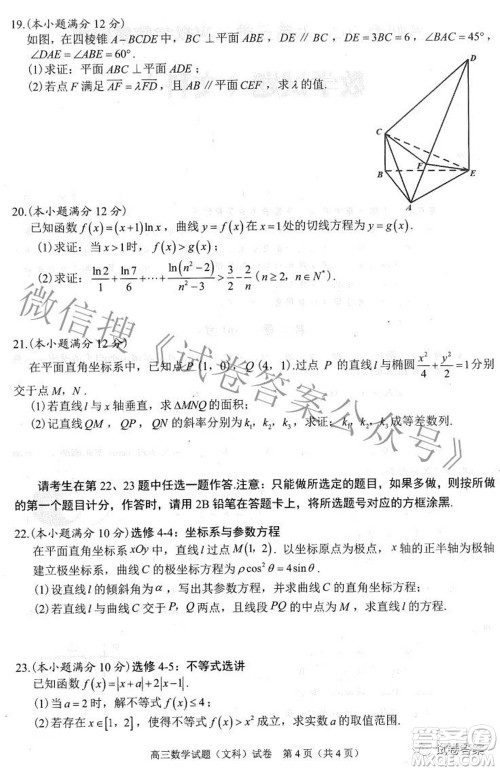 19.(本小题满分 12 分)
如图，在四棱锥 A-BCDE 中，BC ⊥平面 ABE，DE // BC，DE=3BC=6，∠BAC=45°，
∠DAE=∠ABE=60°.
(1)求证：平面 ABC ⊥平面 ADE；
(2)若点 F 满足 AF=λFD，且 AB //平面 CEF，求 λ 的值.
D
C
F
B
E
A
20.(本小题满分 12 分)
已知函数 f(x)=(x+1)lnx，曲线 y=f(x)在 x=1处的切线方程为 y=g(x).
(1)求证：当 x>1时，f(x)>g(x)；
(2)求证：ln2/1+ln7/6+…+ln(n²-2)/(n²-3)>3/2-2/n (n≥2，n∈N*).
21.(本小题满分 12 分)
在平面直角坐标系中，已知点 P (1，0)，Q (4，1).过点 P 的直线 l 与椭圆 x²/4+y²/2=1分别
交于点 M，N.
(1)若直线 l 与 x 轴垂直，求 ΔMNQ 的面积；
(2)记直线 QM，QP，QN 的斜率分别为 k₁，k₂，k₃，求证：k₁，k₂，k₃成等差列.
请考生在第 22、23 题中任选一题作答.注意：只能做所选定的题目，如果多做，则按所做
的第一个题目计分，作答时，请用 2B 铅笔在答题卡上，将所选题号对应的方框涂黑.
22.(本小题满分 10 分)选修 4-4：坐标系与参数方程
在平面直角坐标系 xOy 中，直线 l 过点 M(1，2)．以坐标原点为极点，x 轴的正半轴为极轴
建立极坐标系，曲线 C 的极坐标方程为 ρcos²θ=4sinθ．
(1)若直线 l 的倾斜角为 α，写出其参数方程，并求曲线 C 的直角坐标方程；
(2)若直线 l 与曲线 C 交于 P,Q 两点，且线段 PQ 的中点为 M，求直线 l 的方程.
23.(本小题满分 10 分)选修 4-5：不等式选讲
已知函数 f(x)=|x+a|+2|x-1|．
(1)当 a=1时，解不等式 f(x)≤4；
(2)若存在 x∈[1，2]，使得不等式 f(x)>x² 成立，求实数 a 的取值范围.
高三数学试题（文科）试卷 第 4 页（共 4 页）
微信搜《试卷答案公众号》
试卷答案